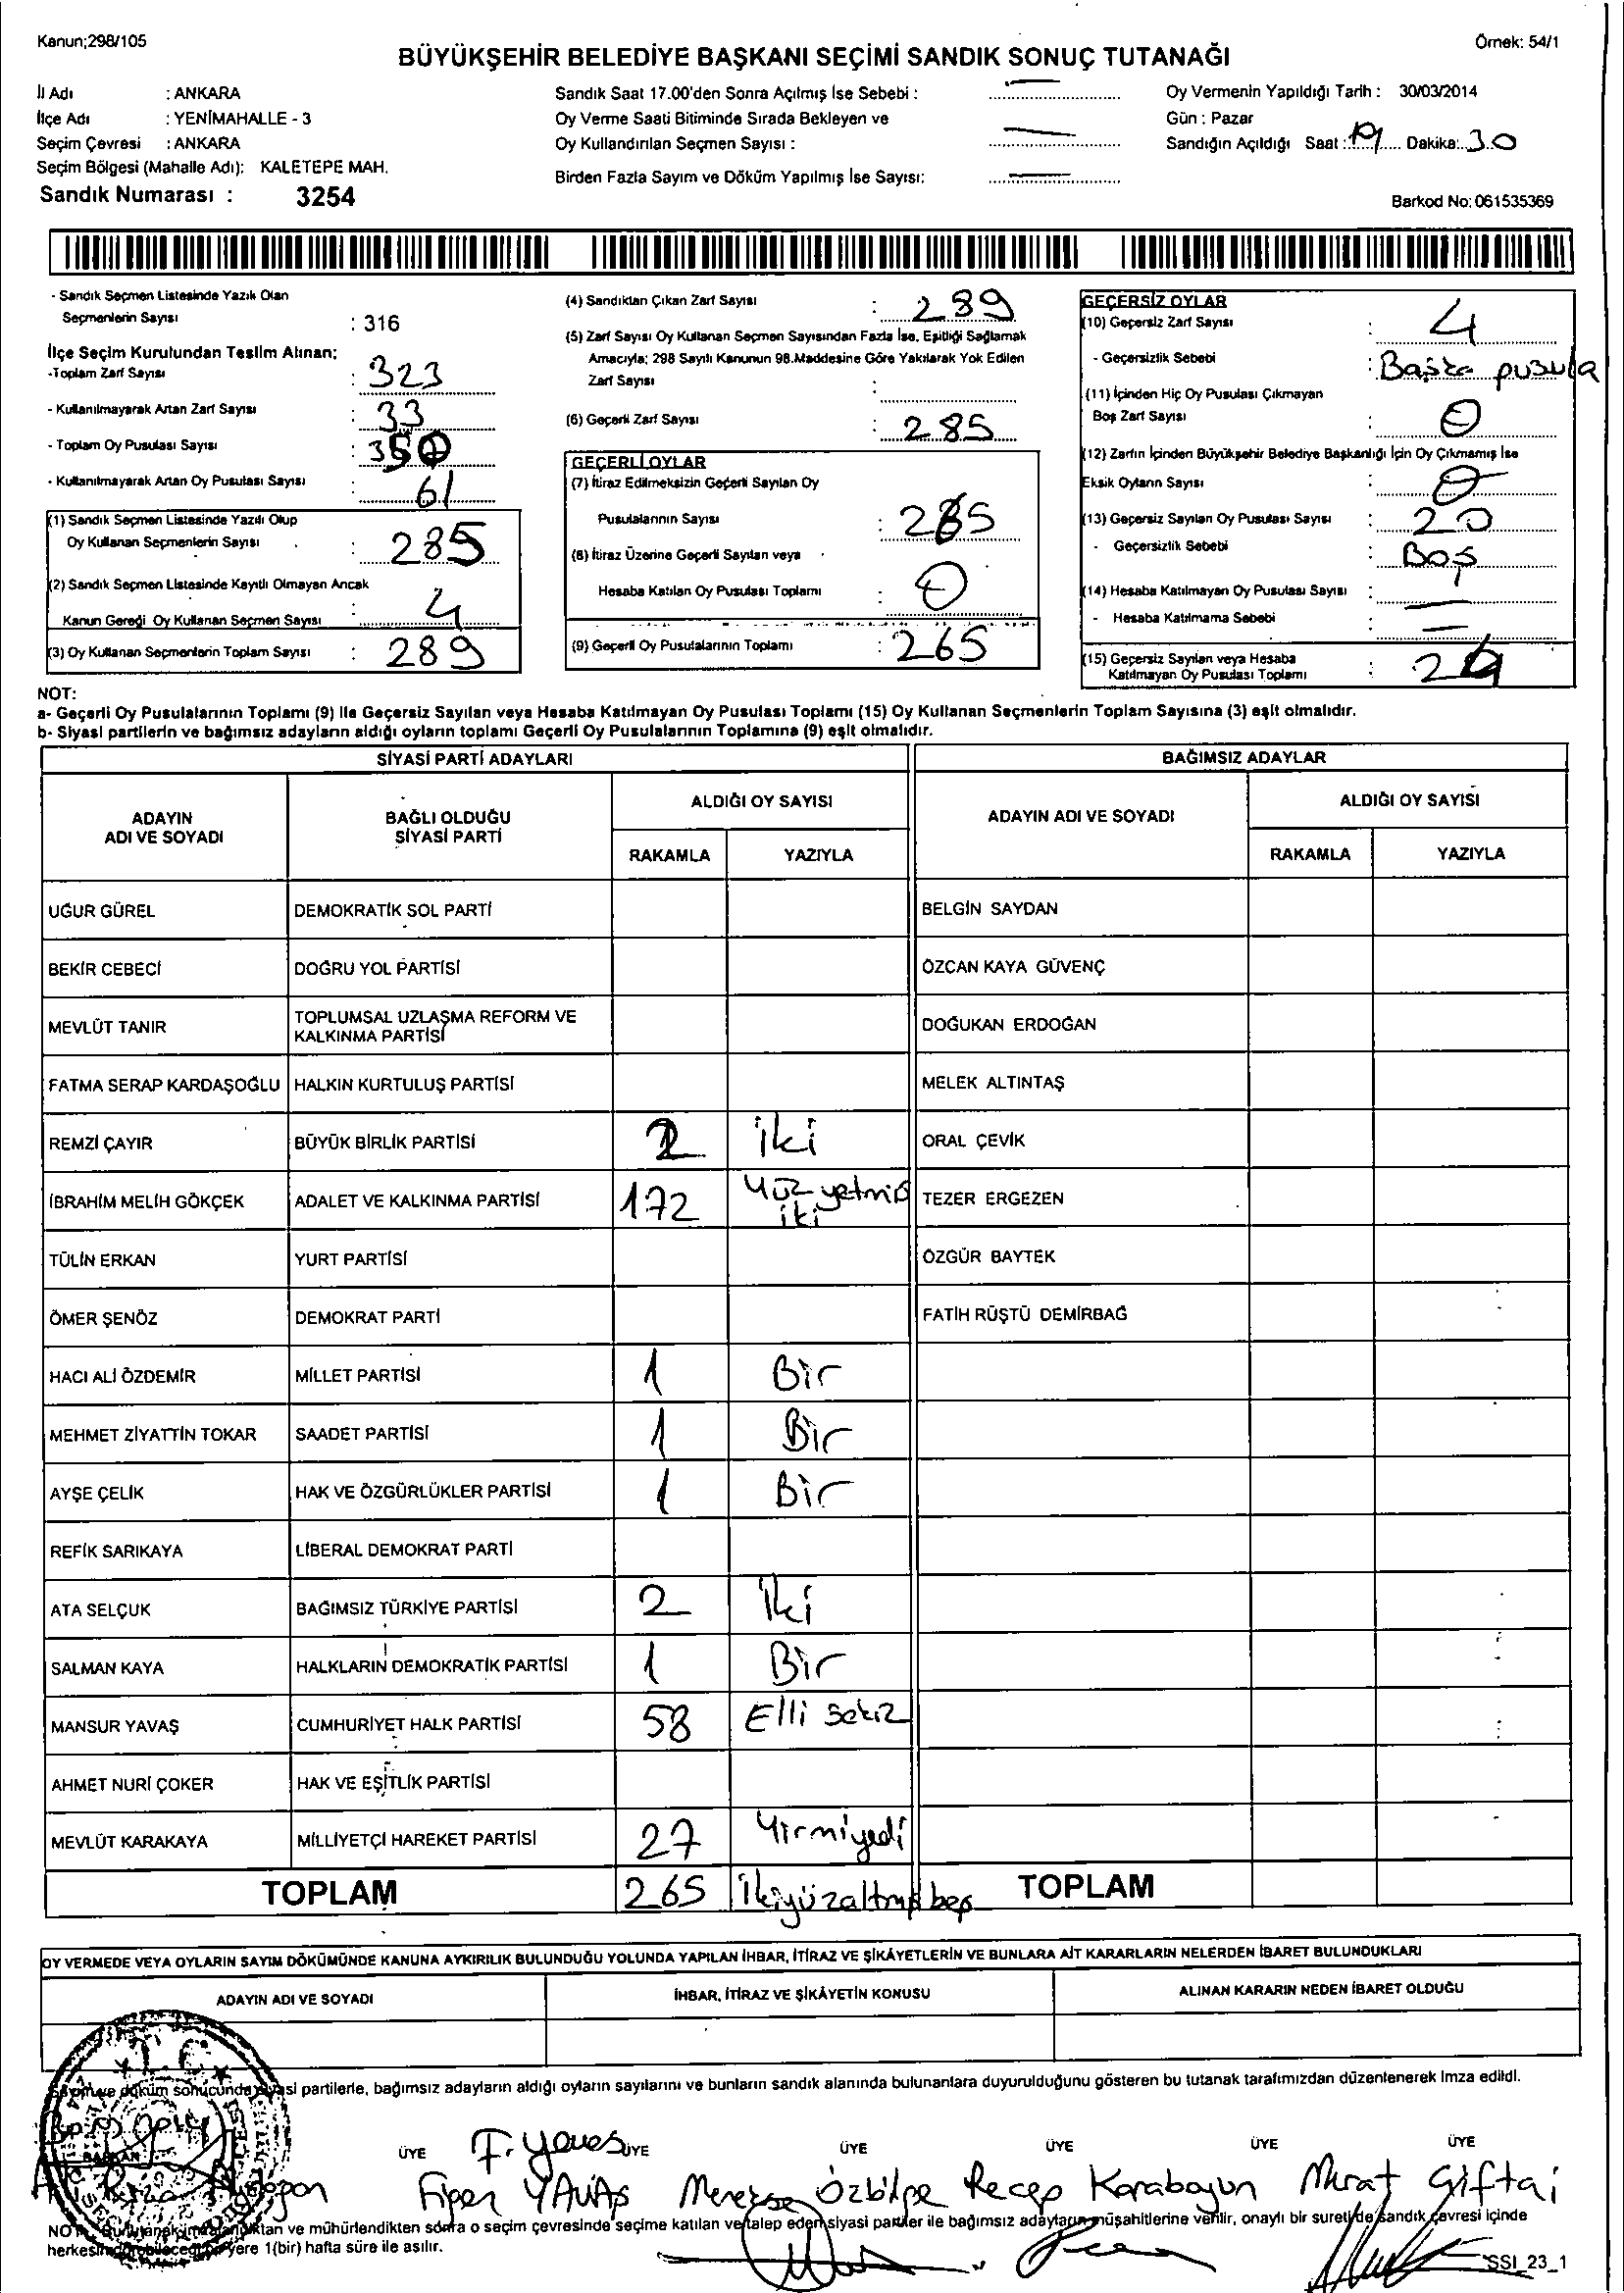 Kanun;298/105
Örnek: 54/1
BÜYÜKŞEHİR BELEDİYE BAŞKANI SEÇİMİ SANDIK SONUÇ TUTANAĞI
İl Adı : ANKARA
İlçe Adı : YENİMAHALLE - 3
Seçim Çevresi : ANKARA
Seçim Bölgesi (Mahalle Adı): KALETEPE MAH.
Sandık Numarası : 3254
Sandık Saat 17.00'den Sonra Açılmış İse Sebebi : —
Oy Verme Saati Bitiminde Sırada Bekleyen ve
Oy Kullandırılan Seçmen Sayısı : —
Birden Fazla Sayım ve Döküm Yapılmış İse Sayısı: —
Oy Vermenin Yapıldığı Tarih : 30/03/2014
Gün : Pazar
Sandığın Açıldığı Saat : 19 Dakika: 30
Barkod No: 061535369
- Sandık Seçmen Listesinde Yazılı Olan
Seçmenlerin Sayısı : 316
İlçe Seçim Kurulundan Teslim Alınan;
-Toplam Zarf Sayısı : 323
- Kullanılmayarak Artan Zarf Sayısı : 33
- Toplam Oy Pusulası Sayısı : 350
- Kullanılmayarak Artan Oy Pusulası Sayısı : 61
(1) Sandık Seçmen Listesinde Yazılı Olup
Oy Kullanan Seçmenlerin Sayısı : 285
(2) Sandık Seçmen Listesinde Kayıtlı Olmayan Ancak
Kanun Gereği Oy Kullanan Seçmen Sayısı : 4
(3) Oy Kullanan Seçmenlerin Toplam Sayısı : 289
(4) Sandıktan Çıkan Zarf Sayısı : 289
(5) Zarf Sayısı Oy Kullanan Seçmen Sayısından Fazla İse, Eşitliği Sağlamak
Amacıyla; 298 Sayılı Kanunun 98.Maddesine Göre Yakılarak Yok Edilen
Zarf Sayısı :
(6) Geçerli Zarf Sayısı : 285
GEÇERLİ OYLAR
(7) İtiraz Edilmeksizin Geçerli Sayılan Oy
Pusulalarının Sayısı : 265
(8) İtiraz Üzerine Geçerli Sayılan veya
Hesaba Katılan Oy Pusulası Toplamı : 0
(9) Geçerli Oy Pusulalarının Toplamı : 265
GEÇERSİZ OYLAR
(10) Geçersiz Zarf Sayısı : 4
- Geçersizlik Sebebi : Başka pusula
(11) İçinden Hiç Oy Pusulası Çıkmayan
Boş Zarf Sayısı : 0
(12) Zarfın İçinden Büyükşehir Belediye Başkanlığı İçin Oy Çıkmamış İse
Eksik Oyların Sayısı : 0
(13) Geçersiz Sayılan Oy Pusulası Sayısı : 20
- Geçersizlik Sebebi : Boş
(14) Hesaba Katılmayan Oy Pusulası Sayısı : —
- Hesaba Katılmama Sebebi : —
(15) Geçersiz Sayılan veya Hesaba
Katılmayan Oy Pusulası Toplamı : 24
NOT:
a- Geçerli Oy Pusulalarının Toplamı (9) ile Geçersiz Sayılan veya Hesaba Katılmayan Oy Pusulası Toplamı (15) Oy Kullanan Seçmenlerin Toplam Sayısına (3) eşit olmalıdır.
b- Siyasi partilerin ve bağımsız adayların aldığı oyların toplamı Geçerli Oy Pusulalarının Toplamına (9) eşit olmalıdır.
SİYASİ PARTİ ADAYLARI
BAĞIMSIZ ADAYLAR
ADAYIN ADI VE SOYADI
BAĞLI OLDUĞU SİYASİ PARTİ
ALDIĞI OY SAYISI
RAKAMLA YAZIYLA
ADAYIN ADI VE SOYADI
ALDIĞI OY SAYISI
RAKAMLA YAZIYLA
UĞUR GÜREL DEMOKRATİK SOL PARTİ BELGİN SAYDAN
BEKİR CEBECİ DOĞRU YOL PARTİSİ ÖZCAN KAYA GÜVENÇ
MEVLÜT TANIR TOPLUMSAL UZLAŞMA REFORM VE KALKINMA PARTİSİ DOĞUKAN ERDOĞAN
FATMA SERAP KARDAŞOĞLU HALKIN KURTULUŞ PARTİSİ MELEK ALTINTAŞ
REMZİ ÇAYIR BÜYÜK BİRLİK PARTİSİ 2 iki ORAL ÇEVİK
İBRAHİM MELİH GÖKÇEK ADALET VE KALKINMA PARTİSİ 172 Yüz yetmiş iki TEZER ERGEZEN
TÜLİN ERKAN YURT PARTİSİ ÖZGÜR BAYTEK
ÖMER ŞENÖZ DEMOKRAT PARTİ FATİH RÜŞTÜ DEMİRBAĞ
HACI ALİ ÖZDEMİR MİLLET PARTİSİ 1 Bir
MEHMET ZİYATTİN TOKAR SAADET PARTİSİ 1 Bir
AYŞE ÇELİK HAK VE ÖZGÜRLÜKLER PARTİSİ 1 Bir
REFİK SARIKAYA LİBERAL DEMOKRAT PARTİ
ATA SELÇUK BAĞIMSIZ TÜRKİYE PARTİSİ 2 iki
SALMAN KAYA HALKLARIN DEMOKRATİK PARTİSİ 1 Bir
MANSUR YAVAŞ CUMHURİYET HALK PARTİSİ 58 Elli sekiz
AHMET NURİ ÇOKER HAK VE EŞİTLİK PARTİSİ
MEVLÜT KARAKAYA MİLLİYETÇİ HAREKET PARTİSİ 27 Yirmiyedi
TOPLAM 265 ikiyüzaltmış beş TOPLAM
OY VERMEDE VEYA OYLARIN SAYIM DÖKÜMÜNDE KANUNA AYKIRILIK BULUNDUĞU YOLUNDA YAPILAN İHBAR, İTİRAZ VE ŞİKÂYETLERİN VE BUNLARA AİT KARARLARIN NELERDEN İBARET BULUNDUKLARI
ADAYIN ADI VE SOYADI İHBAR, İTİRAZ VE ŞİKÂYETİN KONUSU ALINAN KARARIN NEDEN İBARET OLDUĞU
T.C.
Sayım ve döküm sonucunda siyasi partilerle, bağımsız adayların aldığı oyların sayılarını ve bunların sandık alanında bulunanlara duyurulduğunu gösteren bu tutanak tarafımızdan düzenlenerek imza edildi.
BAŞKAN ÜYE F. Yavaş ÜYE ÜYE ÜYE ÜYE ÜYE
Figen YAVAŞ Menekşe Özbilge Recep Karaboyun Murat Çiftçi
NOT: Bu tutanak imzalandıktan ve mühürlendikten sonra o seçim çevresinde seçime katılan ve talep eden siyasi partiler ile bağımsız adayların müşahitlerine verilir, onaylı bir sureti de sandık çevresi içinde
herkesin görebileceği bir yere 1(bir) hafta süre ile asılır.
SSI_23_1